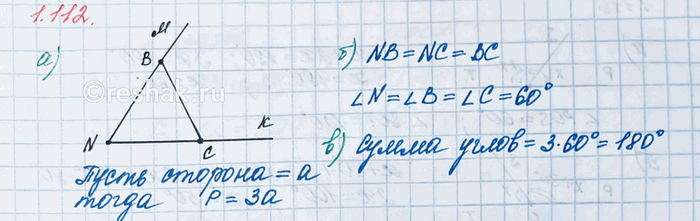 1.112.
а)
M
B
N
C
K
Пусть сторона = a
тогда P = 3a
б) NB = NC = BC
∠N = ∠B = ∠C = 60°
в) Сумма углов = 3·60° = 180°
reshak.ru